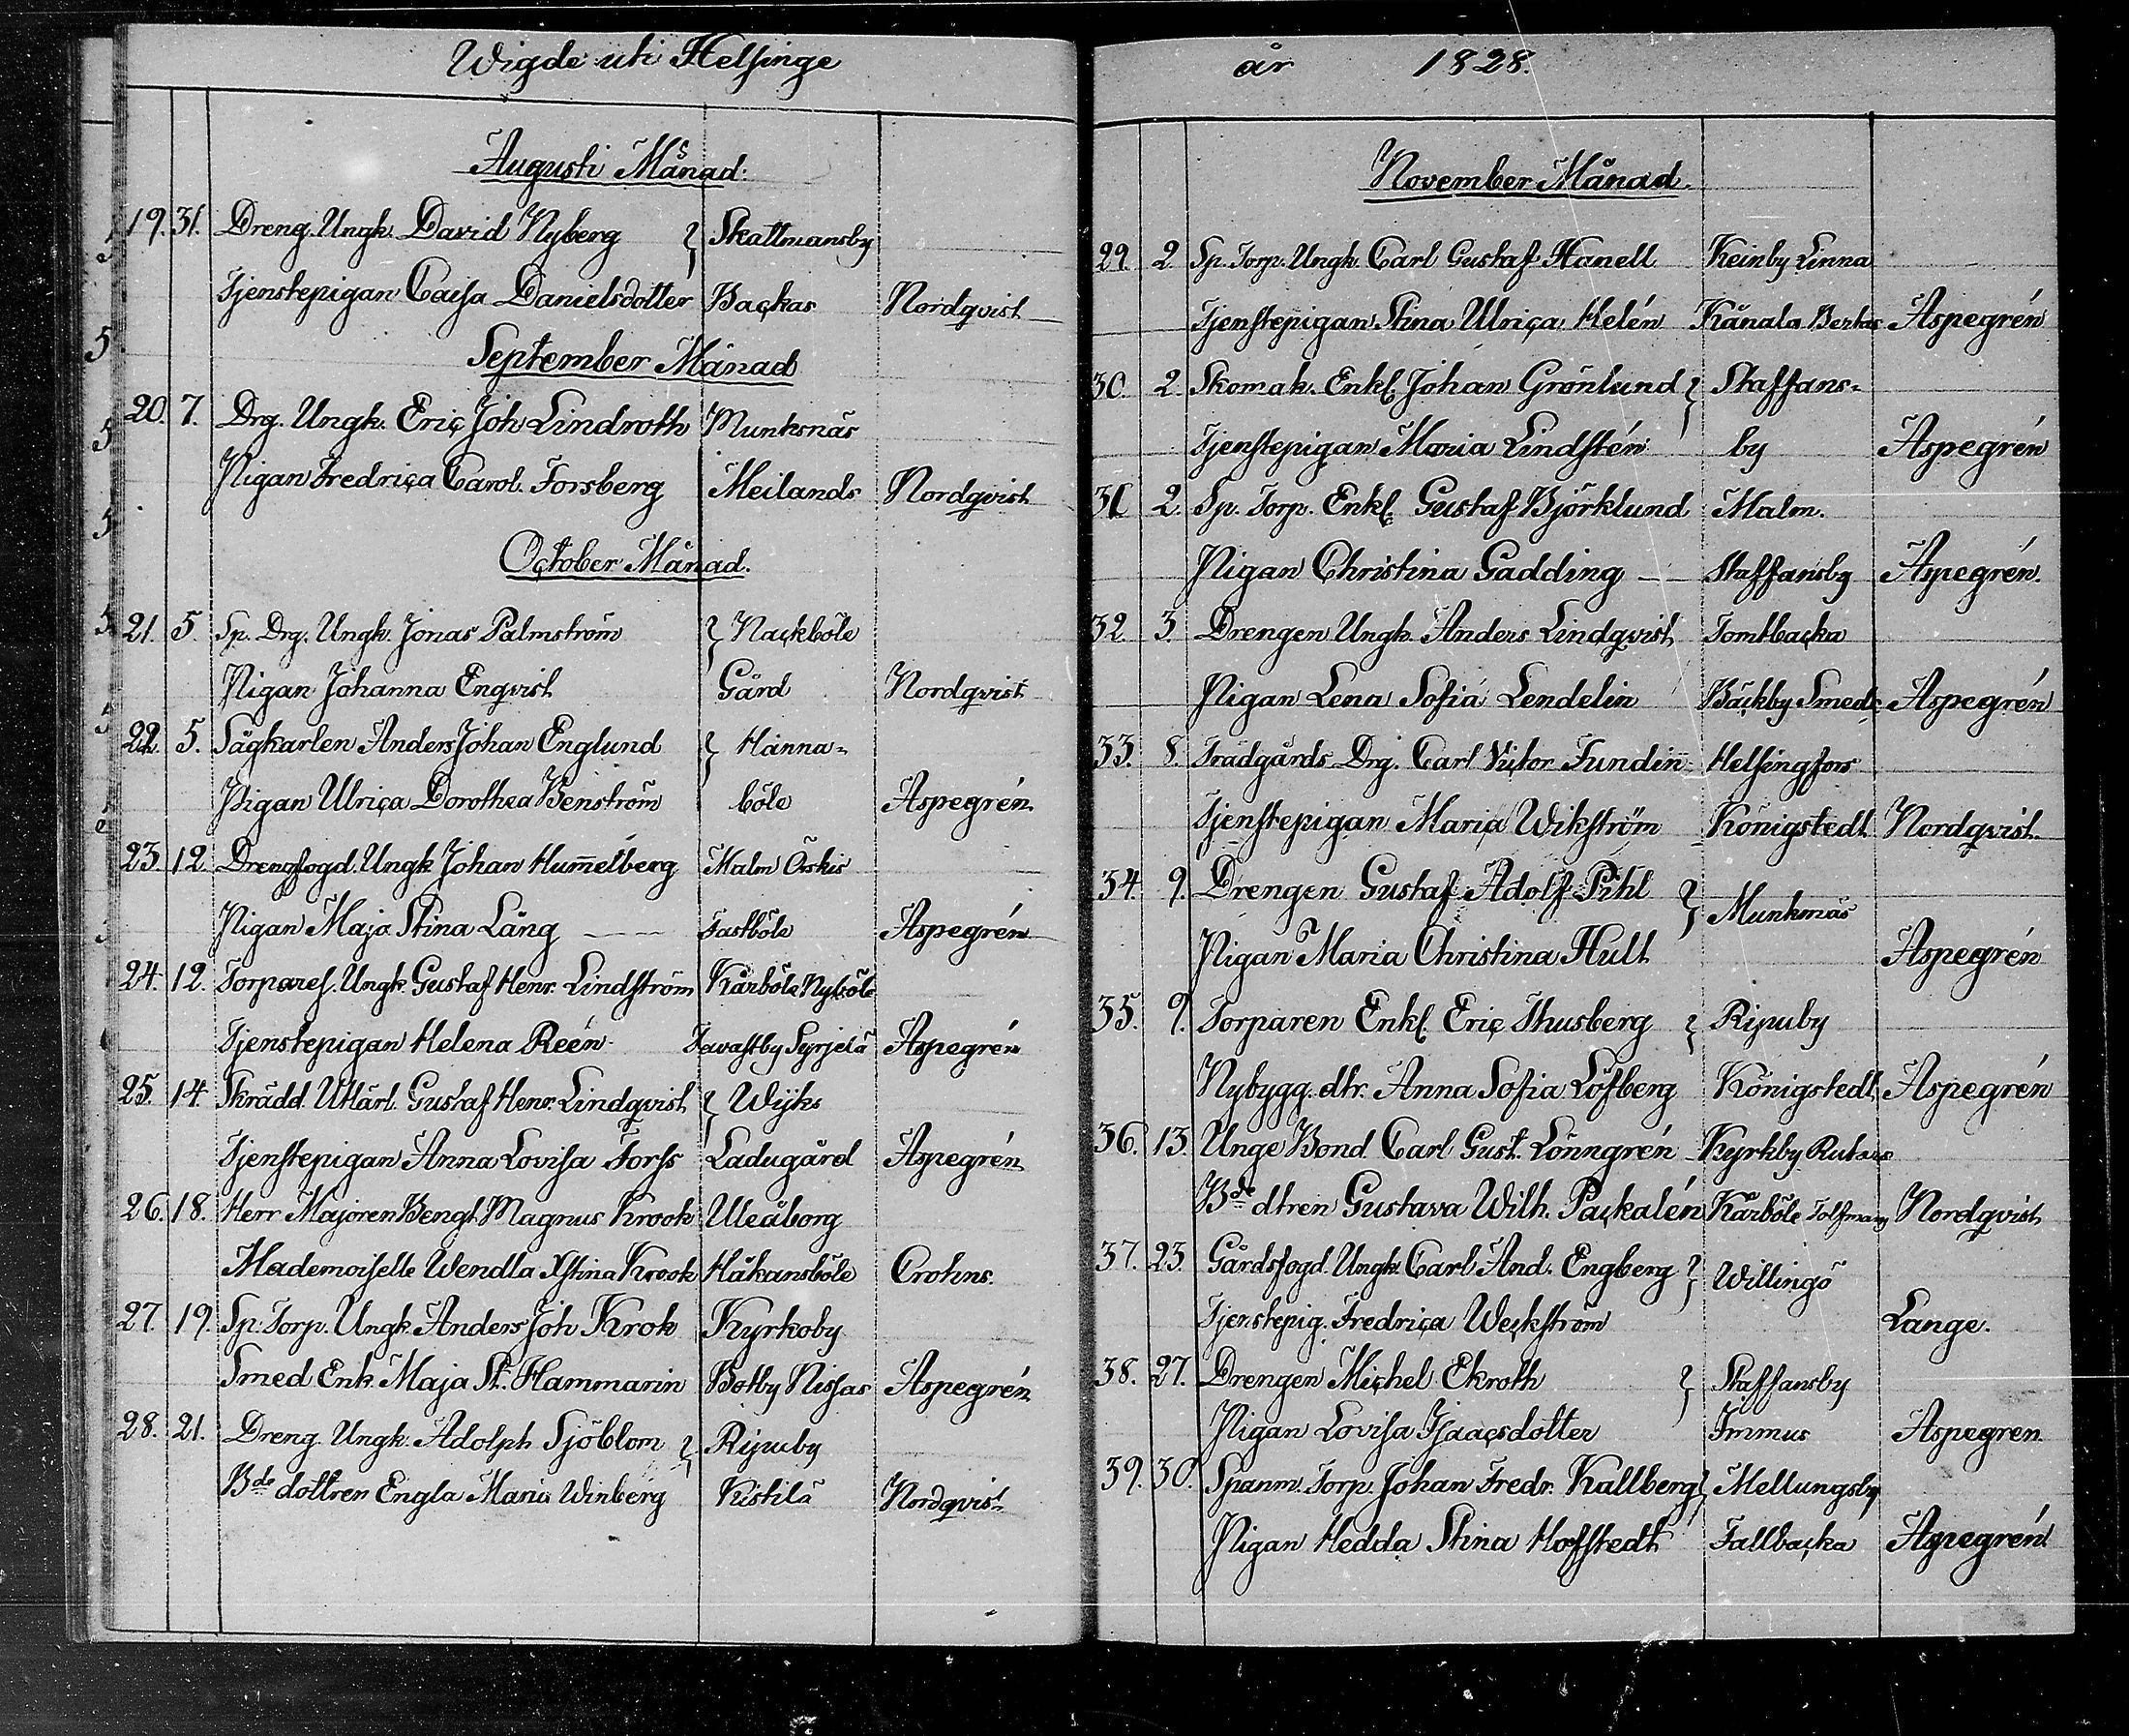 Wigde uti Helsinge
Augusti Månad.
19. 31. Dreng. Ungk. David Nyberg } Skattmansby
Tjenstepigan Caisa Danielsdotter Backas Nordqvist
September Månad
20. 7. Drg. Ungk. Eric Joh Lindroth Munksnäs
Pigan Fredrica Carol. Forsberg Meilands Nordqvist
October Månad.
21. 5. Sp. Drg. Ungk. Jonas Palmström } Nackböle
Pigan Johanna Enqvist Gård Nordqvist
22. 5. Sågkarlen Anders Johan Englund } Hanna-
Pigan Ulrica Dorothea Benström böle Aspegrén
23. 12. Drengfogd. Ungk Johan Hum̄elberg Malm Öskis
Pigan Maja Stina Lång Fastböle Aspegrén
24. 12. Torpares. Ungk. Gustaf Henr. Lindström Kårböle Nyböle
Tjenstepigan Helena Reén Tavastby Syrjelä Aspegrén
25. 14. Skrädd. Utlärl. Gustaf Henr. Lindqvist } Wijks
Tjenstepigan Anna Lovisa Forss Ladugård Aspegrén
26. 18. Herr Majoren Bengt Magnus Krook Uleåborg
Mademoiselle Wendla Xstina Krook Håkansböle Crohns.
27. 19. Sp. Torp. Ungk. Anders Joh Krok Kyrkoby
Smed Enk. Maja St. Hammarin Botby Nissas Aspegrén
28. 21. Dreng. Ungk. Adolph Sjöblom } Ripuby
Bde dottren Engla Maria Winberg Kistilä Nordqvist
år 1828.
November Månad.
29. 2. Sp. Torp. Ungk. Carl Gustaf Hanell Keinby Linna
Tjenstepigan Stina Ulrica Helén Kånala Bertas Aspegrén
30. 2. Skomak. Enkl. Johan Grönlund } Staffans-
Tjenstepigan Maria Lindstén by Aspegrén
31 2. Sp. Torp. Enkl. Gustaf Björklund Malm.
Pigan Christina Gadding Staffansby Aspegrén.
32. 3. Drengen Ungk. Anders Lindqvist Tomtbacka
Pigan Lena Sofia Lendelin Bäckby Smeds Aspegrén
33. 8. Trädgårds Drg. Carl Victor Fundin Helsingfors
Tjenstepigan Maria Wikström Königstedt Nordqvist
34. 9. Drengen Gustaf Adolf Pihl } Munksnäs
Pigan Maria Christina Hult Aspegrén
35. 9. Torparen Enkl. Eric Thusberg } Ripuby
Nybygg. dtr. Anna Sofia Löfberg Königstedt Aspegrén
36. 13. Unge Bond. Carl Gust. Lönngrén Kyrkby Rutars
Bde dtren Gustava Wilh. Packalén Kårböle Tolfmans Nordqvist
37. 23. Gårdsfogd. Ungk. Carl And. Engberg } Willingö
Tjenstepig. Fredrica Weckström Lange.
38. 27. Drengen Michel Ekroth } Staffansby
Pigan Lovisa Isaacsdotter Immus Aspegren
39. 30. Spanm. Torp. Johan Fredr. Kallberg } Mellungsby
Pigan Hedda Stina Hoffstedt Fallbacka Aspegrén